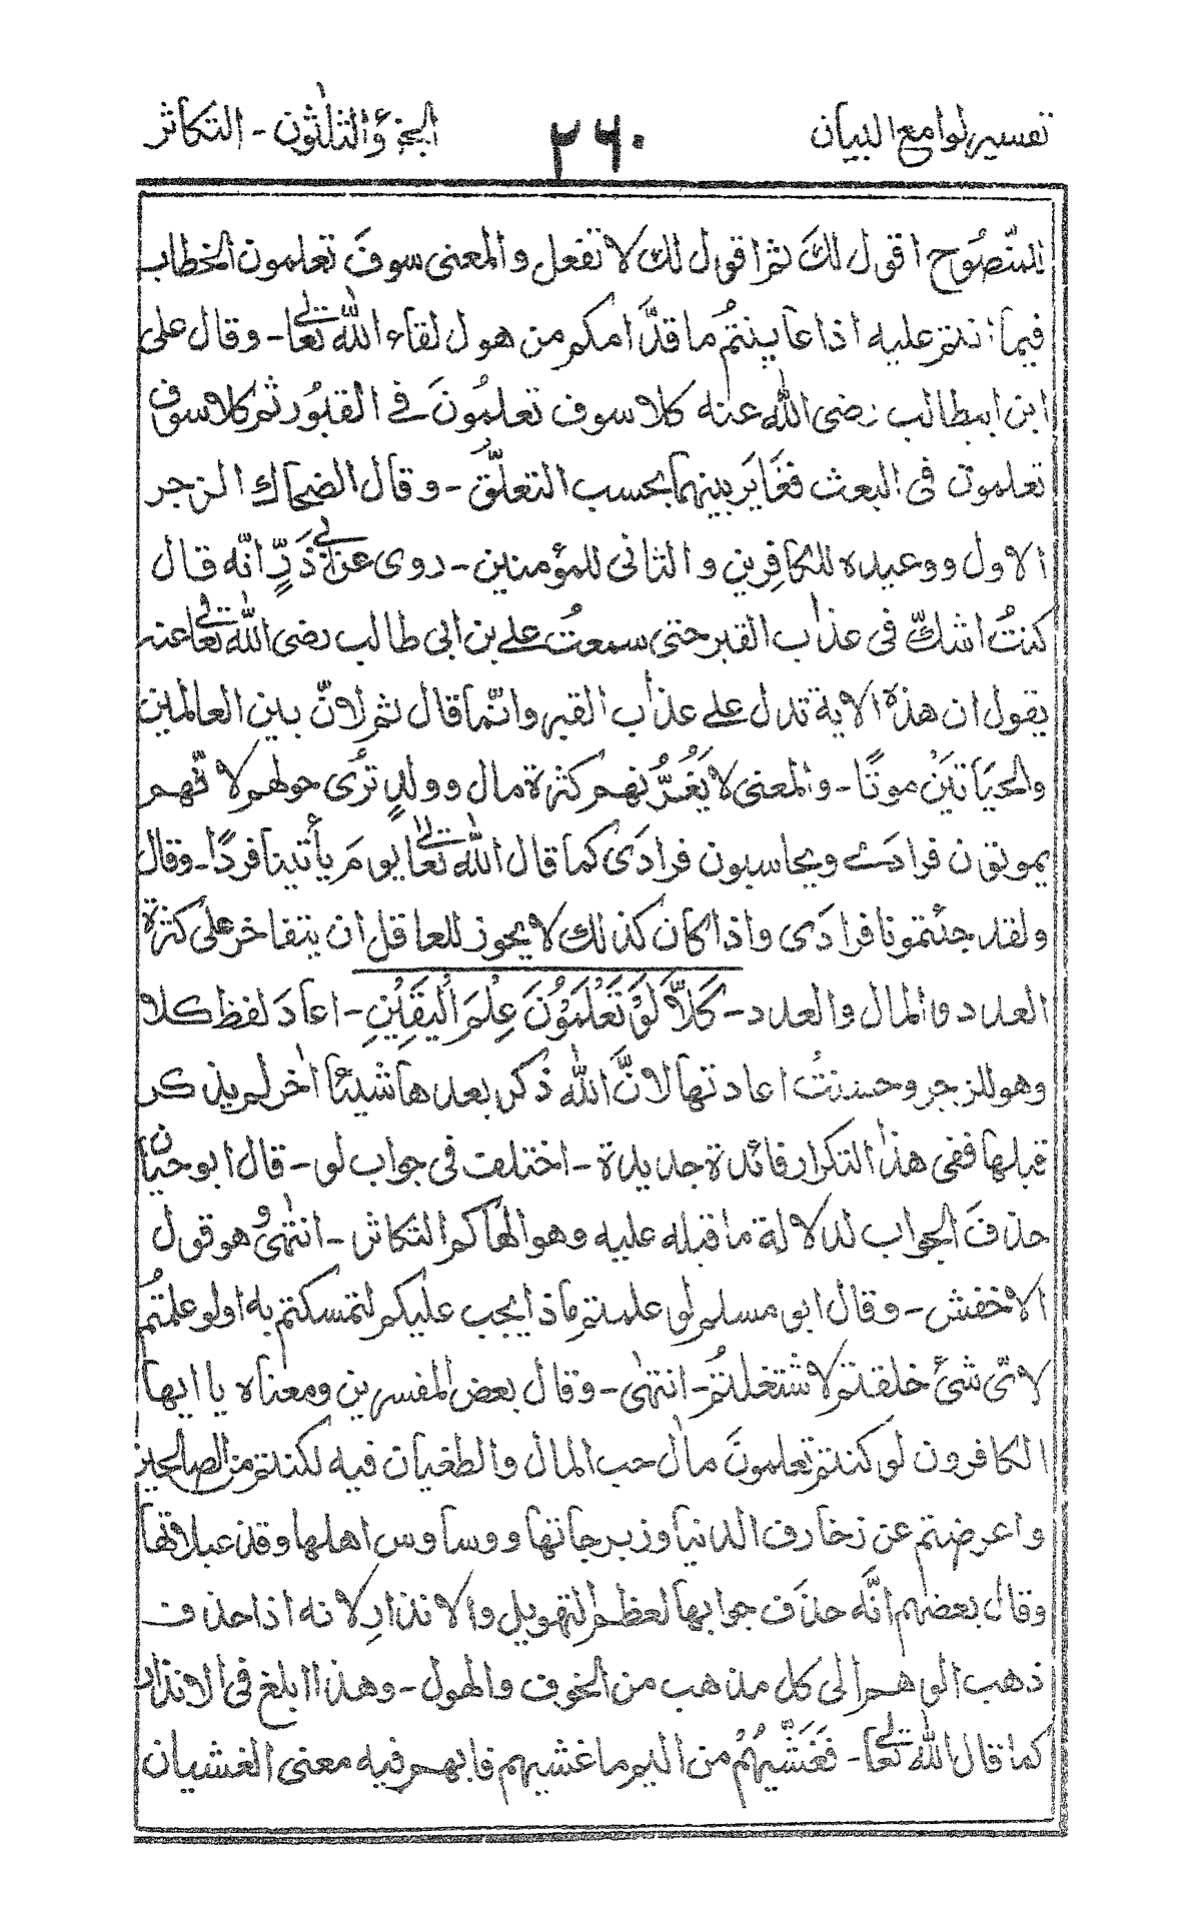 تفسير لوامع البيان ٢٦٠ الجزؤ الثلٰثون - التكاثر
المنّصُوح اقول لكَ ثم اقول لك لا تفعل والمعنى سوفَ تعلمون الخطاب
فيما انتم عليه اذا عاينتمُ ما قدَّامكم من هول لقاء اللّٰه تعالٰى - وقال على
ابن ابيطالب رضى اللّٰه عنه كلا سوف تعلمُونَ فى القبُور ثم كلا سوف
تعلمون فى البعث فغَايَر بينهما بحسب التعلّقُ - وقال الضحاك الزجر
الاول ووعيده للكافِرين والثانى للمؤمنين - روى عن ابى ذَرٍّ انّه قال
كنتُ اشكّ فى عذاب القبر حتى سمعتُ على بن ابى طالب رضى اللّٰه تعالٰى عنه
يقول ان هذه الاية تدل على عذاب القبر وانّما قال ثم لانّ بين العالمين
والحيَاتَيَنْ موتًا - والمعنى لا يَغُرَّنهم كثرة مال وولدٍ ترٰى حولهم لا نّهم
يموتون فرادىٰ ويحاسبون فرادَى كما قال اللّٰه تعالٰى يومَ يأتينا فردًا - وقال
ولقد جئتمونا فرادَى واذا كان كذلك لا يجوز للعاقل ان يتفاخر على كثرة
العدد والمال والعدد - كَلاَّ لَوْ تَعْلَمُوْنَ عِلْمَ الْيَقِيْنِ - اعادَ لفظ كلا
وهو للزجر وحسنتُ اعادتها لانَّ اللّٰه ذكر بعدها شيئًا اٰخر لم يذكر
قبلها ففى هذا التكرار فائدة جديدة - اختلف فى جواب لو - قال ابو حيان
حذفَ الجواب لدلالة ما قبله عليه وهو الهاكم التكاثر - انتهٰى وهو قول
الاخفش - وقال ابو مسلم لو علمتم ماذا يجب عليكم لتمسكتم به اولو علمتمُ
لاىّ شئ خلقتم لاشتغلتمُ - انتهٰى - وقال بعض المفسرين ومعناه يا ايها
الكافرون لو كنتم تعلمونَ مال حب المال والطغيان فيه لكنتم من الصالحين
واعرضتم عن زخارف الدنيا وزبرجاتها ووساوس اهلها وقذ عبلاقتها
وقال بعضهم انَّه حذفَ جوابها لعظم التهويل والانذار لانه اذا حذف
ذهب الوهم الى كل مذهب من الخوف والهول - وهذا ابلغ فى الانذار
كما قال اللّٰه تعالٰى - فَغَشِّيَهُمْ من اليم ما غشيهم فابهم فيه معنى الغشيان